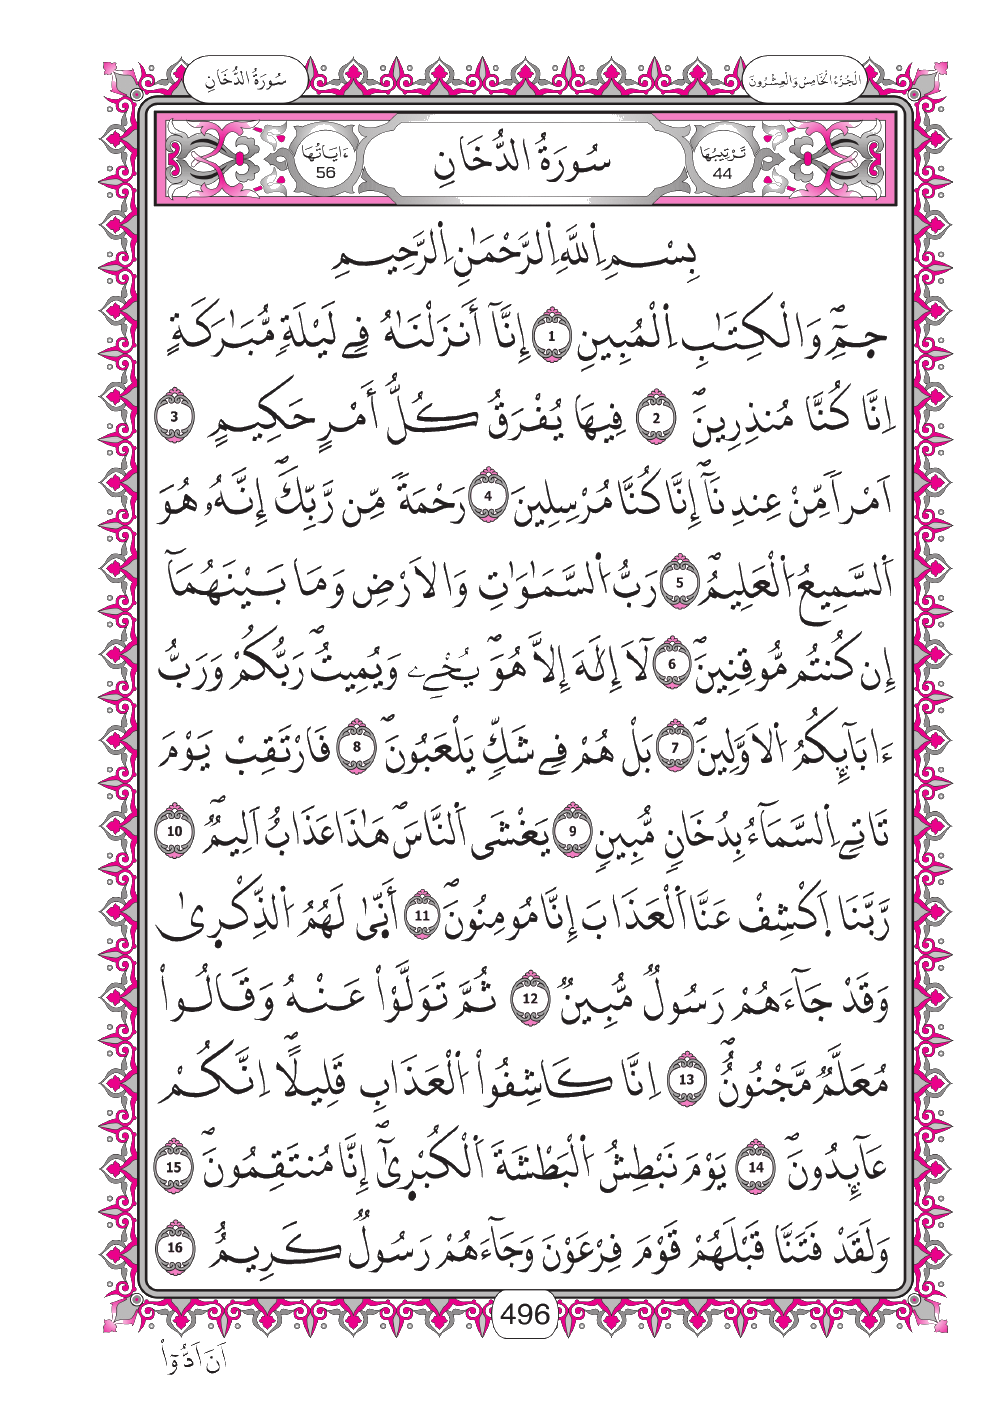 الجُزْءُ الخَامِسُ وَالعِشْرُونَ
سُورَةُ الدُّخَانِ
تَرْتِيبُهَا 44
سُورَةُ الدُّخَانِ
ءَايَاتُهَا 56
بِسْمِ اِ۬للَّهِ اِ۬لرَّحْمَٰنِ اِ۬لرَّحِيمِ
حَمِٓۖ وَالْكِتَٰبِ اِ۬لْمُبِينِ 1 إِنَّآ أَنزَلْنَٰهُ فِے لَيْلَةٖ مُّبَٰرَكَةٍ
اِنَّا كُنَّا مُنذِرِينَۖ 2 فِيهَا يُفْرَقُ كُلُّ أَمْرٍ حَكِيمٍ 3
اَمْراٗ مِّنْ عِندِنَآۖ إِنَّا كُنَّا مُرْسِلِينَ 4 رَحْمَةٗ مِّن رَّبِّكَۖ إِنَّهُۥ هُوَ
اَ۬لسَّمِيعُ اُ۬لْعَلِيمُۖ 5 رَبُّ اُ۬لسَّمَٰوَٰتِ وَالَارْضِ وَمَا بَيْنَهُمَآ
إِن كُنتُم مُّوقِنِينَۖ 6 لَآ إِلَٰهَ إِلَّا هُوَۖ يُحْيِے وَيُمِيتُۖ رَبُّكُمْ وَرَبُّ
ءَابَآئِكُمُ اُ۬لَاوَّلِينَۖ 7 بَلْ هُمْ فِے شَكّٖ يَلْعَبُونَۖ 8 فَارْتَقِبْ يَوْمَ
تَاتِے اِ۬لسَّمَآءُ بِدُخَانٖ مُّبِينٖ 9 يَغْشَى اَ۬لنَّاسَۖ هَٰذَا عَذَابٌ اَلِيمٞۖ 10
رَّبَّنَا اَ۪كْشِفْ عَنَّا اَ۬لْعَذَابَ إِنَّا مُومِنُونَۖ 11 أَنّۭيٰ لَهُمُ اُ۬لذِّكْر۪يٰ
وَقَدْ جَآءَهُمْ رَسُولٞ مُّبِينٞ 12 ثُمَّ تَوَلَّوْاْ عَنْهُ وَقَالُواْ
مُعَلَّمٞ مَّجْنُونٌۖ 13 اِنَّا كَاشِفُواْ اُ۬لْعَذَابِ قَلِيلاًۖ اِنَّكُمْ
عَآئِدُونَۖ 14 يَوْمَ نَبْطِشُ اُ۬لْبَطْشَةَ اَ۬لْكُبْر۪يٰٓۖ إِنَّا مُنتَقِمُونَۖ 15
وَلَقَدْ فَتَنَّا قَبْلَهُمْ قَوْمَ فِرْعَوْنَ وَجَآءَهُمْ رَسُولٞ كَرِيمٌ 16
496
اَنَ اَدُّوٓاْ